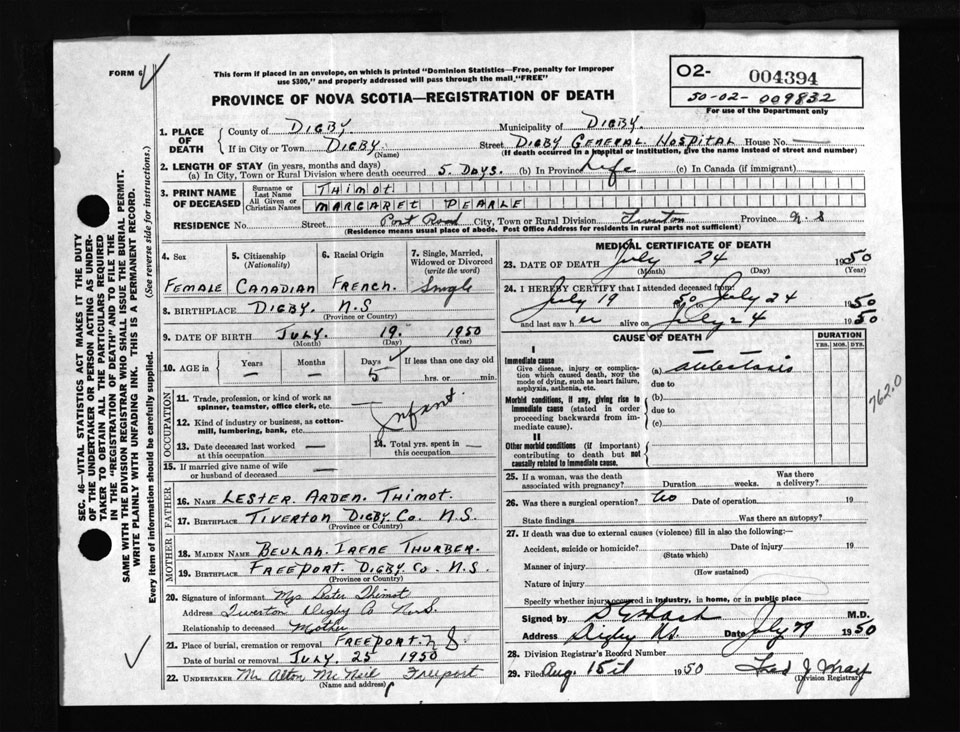 FORM 6
This form if placed in an envelope, on which is printed "Dominion Statistics—Free, penalty for improper
use $300," and properly addressed will pass through the mail "FREE"
PROVINCE OF NOVA SCOTIA—REGISTRATION OF DEATH
O2- 004394
50-02-009832
For use of the Department only
1. PLACE OF DEATH
County of DIGBY. Municipality of DIGBY.
If in City or Town DIGBY. (Name) Street DIGBY GENERAL HOSPITAL House No.
(If death occurred in a hospital or institution, give the name instead of street and number)
2. LENGTH OF STAY (in years, months and days)
(a) In City, Town or Rural Division where death occurred 5. DAYS. (b) In Province Life (c) In Canada (if immigrant)
3. PRINT NAME OF DECEASED
Surname or Last Name THIMOT
All Given or Christian Names MARGARET PEARLE
RESIDENCE No. Street Post Road City, Town or Rural Division Tiverton Province N.S
(Residence means usual place of abode. Post Office Address for residents in rural parts not sufficient)
4. Sex
FEMALE
5. Citizenship (Nationality)
CANADIAN
6. Racial Origin
FRENCH.
7. Single, Married, Widowed or Divorced (write the word)
Single
8. BIRTHPLACE DIGBY. N.S
(Province or Country)
9. DATE OF BIRTH JULY. 19. 1950
(Month) (Day) (Year)
10. AGE in Years — Months — Days 5 If less than one day old
hrs. or min.
OCCUPATION
11. Trade, profession, or kind of work as
spinner, teamster, office clerk, etc. Infant.
12. Kind of industry or business, as cotton-
mill, lumbering, bank, etc.
13. Date deceased last worked at this occupation —
14. Total yrs. spent in this occupation —
15. If married give name of wife
or husband of deceased —
FATHER
16. NAME LESTER. ARDEN. THIMOT.
17. BIRTHPLACE TIVERTON DIGBY. CO. N.S.
(Province or Country)
MOTHER
18. MAIDEN NAME BEULAH. IRENE THURBER.
19. BIRTHPLACE FREEPORT. DIGBY CO. N.S.
(Province or Country)
20. Signature of informant Mrs Lester Thimot
Address Tiverton Digby Co N.S.
Relationship to deceased Mother
21. Place of burial, cremation or removal FREEPORT. N S
Date of burial or removal JULY. 25 1950
22. UNDERTAKER Mr Alton McNeil Freeport
(Name and address)
MEDICAL CERTIFICATE OF DEATH
23. DATE OF DEATH July 24 1950
(Month) (Day) (Year)
24. I HEREBY CERTIFY that I attended deceased from:
July 19 1950 to July 24 1950
and last saw her alive on July 24 1950
CAUSE OF DEATH
DURATION
YRS. MOS. DYS.
I
Immediate cause
Give disease, injury or complica-
tion which caused death, not the
mode of dying, such as heart failure,
asphyxia, asthenia, etc.
(a) Atelectasis
due to
Morbid conditions, if any, giving rise to
immediate cause (stated in order
proceeding backwards from im-
mediate cause).
(b)
due to
(c)
II
Other morbid conditions (if important)
contributing to death but not
causally related to immediate cause.
7620
25. If a woman, was the death
associated with pregnancy? Duration weeks. Was there a delivery?
26. Was there a surgical operation? no Date of operation 19
State findings Was there an autopsy?
27. If death was due to external causes (violence) fill in also the following:—
Accident, suicide or homicide? Date of injury 19
(State which)
Manner of injury
(How sustained)
Nature of injury
Specify whether injury occurred in industry, in home, or in public place
Signed by M.D.
Address Digby NS. Date July 1950
28. Division Registrar's Record Number
29. Filed Aug. 15th 1950
(Division Registrar)
SEC. 46—VITAL STATISTICS ACT MAKES IT THE DUTY
OF THE UNDERTAKER OR PERSON ACTING AS UNDER-
TAKER TO OBTAIN ALL THE PARTICULARS REQUIRED
IN THE "REGISTRATION OF DEATH" AND TO FILE THE
SAME WITH THE DIVISION REGISTRAR WHO SHALL ISSUE THE BURIAL PERMIT.
WRITE PLAINLY WITH UNFADING INK. THIS IS A PERMANENT RECORD.
Every item of information should be carefully supplied. (See reverse side for instructions.)